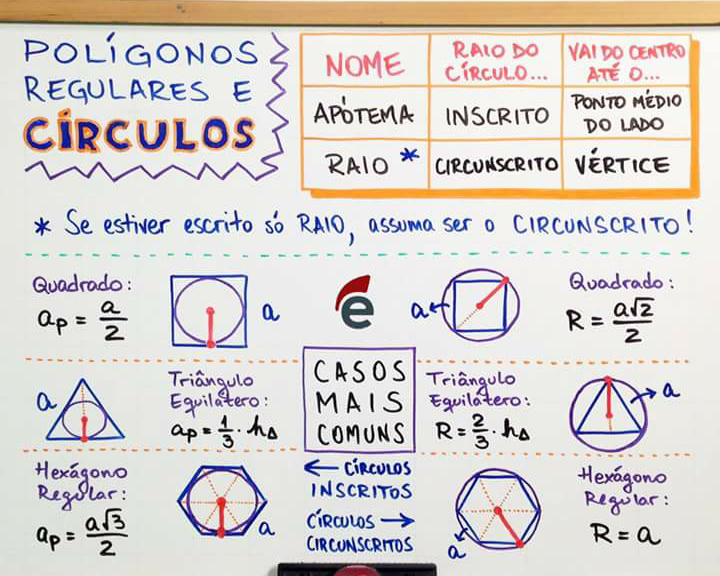 POLÍGONOS
REGULARES E
CÍRCULOS
NOME
RAIO DO
CÍRCULO...
VAI DO CENTRO
ATÉ O...
APÓTEMA
INSCRITO
PONTO MÉDIO
DO LADO
RAIO *
CIRCUNSCRITO
VÉRTICE
* Se estiver escrito só RAIO, assuma ser o CIRCUNSCRITO!
Quadrado:
ap = a/2
a
e
a
Quadrado:
R = a√2/2
a
Triângulo
Equilátero:
ap = 1/3 · h△
CASOS
MAIS
COMUNS
Triângulo
Equilátero:
R = 2/3 · h△
a
Hexágono
Regular:
ap = a√3/2
a
← CÍRCULOS
INSCRITOS
CÍRCULOS →
CIRCUNSCRITOS
a
Hexágono
Regular:
R = a